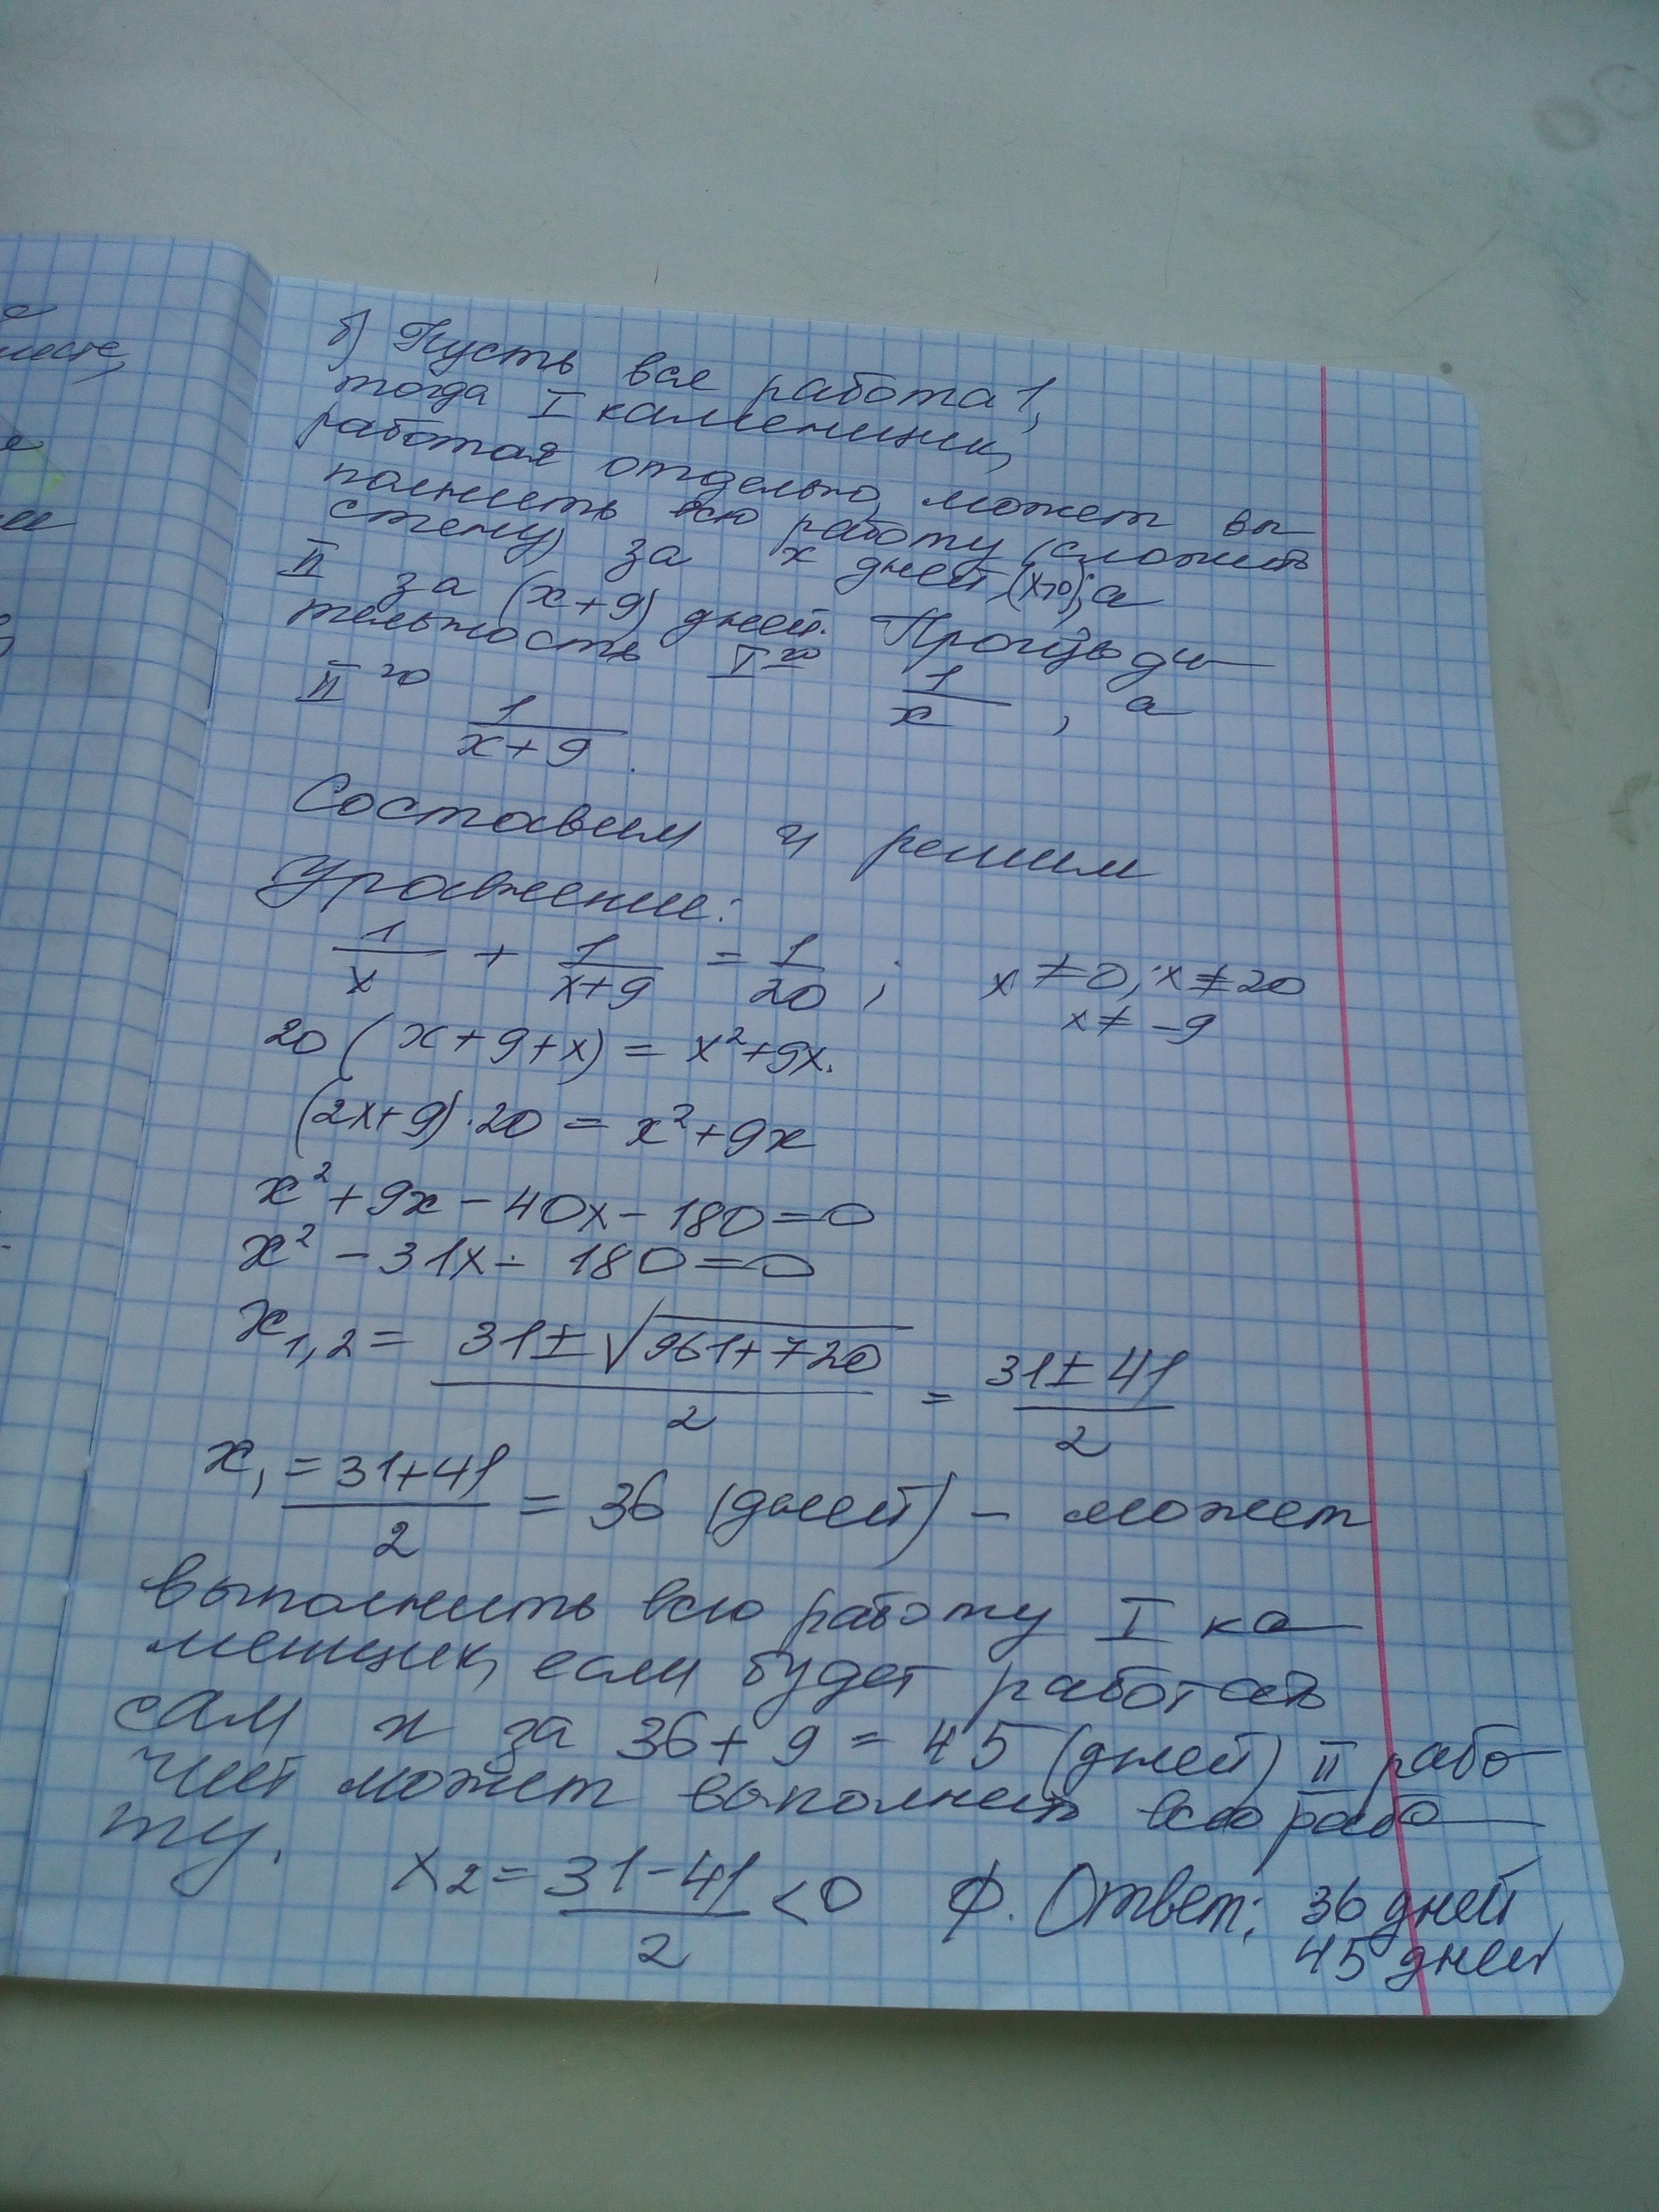 б) Пусть вся работа 1,
тогда I каменщик,
работая отдельно, может вы
полнить всю работу (сложить
стену) за x дней (x>0), а
II за (x+9) дней. Производи-
тельность I го 1/x, а
II го 1/(x+9).
Составим и решим
Уравнение:
1/x + 1/(x+9) = 1/20; x ≠ 0; x ≠ 20
x ≠ -9
20 (x+9+x) = x²+9x.
(2x+9)·20 = x²+9x
x²+9x-40x-180=0
x²-31x-180=0
x1,2 = (31±√(961+720))/2 = (31±41)/2
x1 = (31+41)/2 = 36 (дней) - может
выполнить всю работу I ка
менщик, если будет работать
сам и за 36+9=45 (дней) II рабо
чий может выполнить всю рабо
ту.
x2 = (31-41)/2 <0 ф. Ответ: 36 дней,
45 дней
месте,